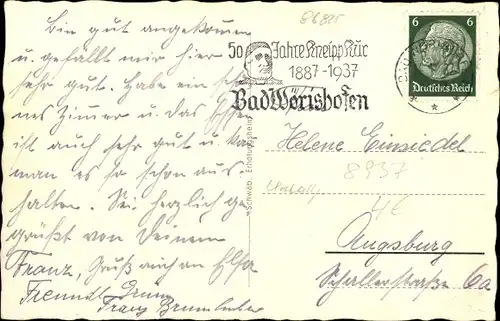 Bin gut angekommen
u. gefällt mir hier
sehr gut. Habe ein schö-
nes Zimmer u. das Essen
ist auch sehr gut u. ka
man es so schon aus
halten. Sei herzlich ge
grüßt von Deinem
Franz, Gruß auch an Elsa
Freundl. Gruß
Franz
86825
50 Jahre Kneippkur
1887-1937
Bad Wörishofen
6 6
Deutsches Reich
BAD WÖRISHOFEN
Schwäb. Erholungsheim
Helene Einsiedel
8937
4€
Augsburg
Schallerstraße 6a